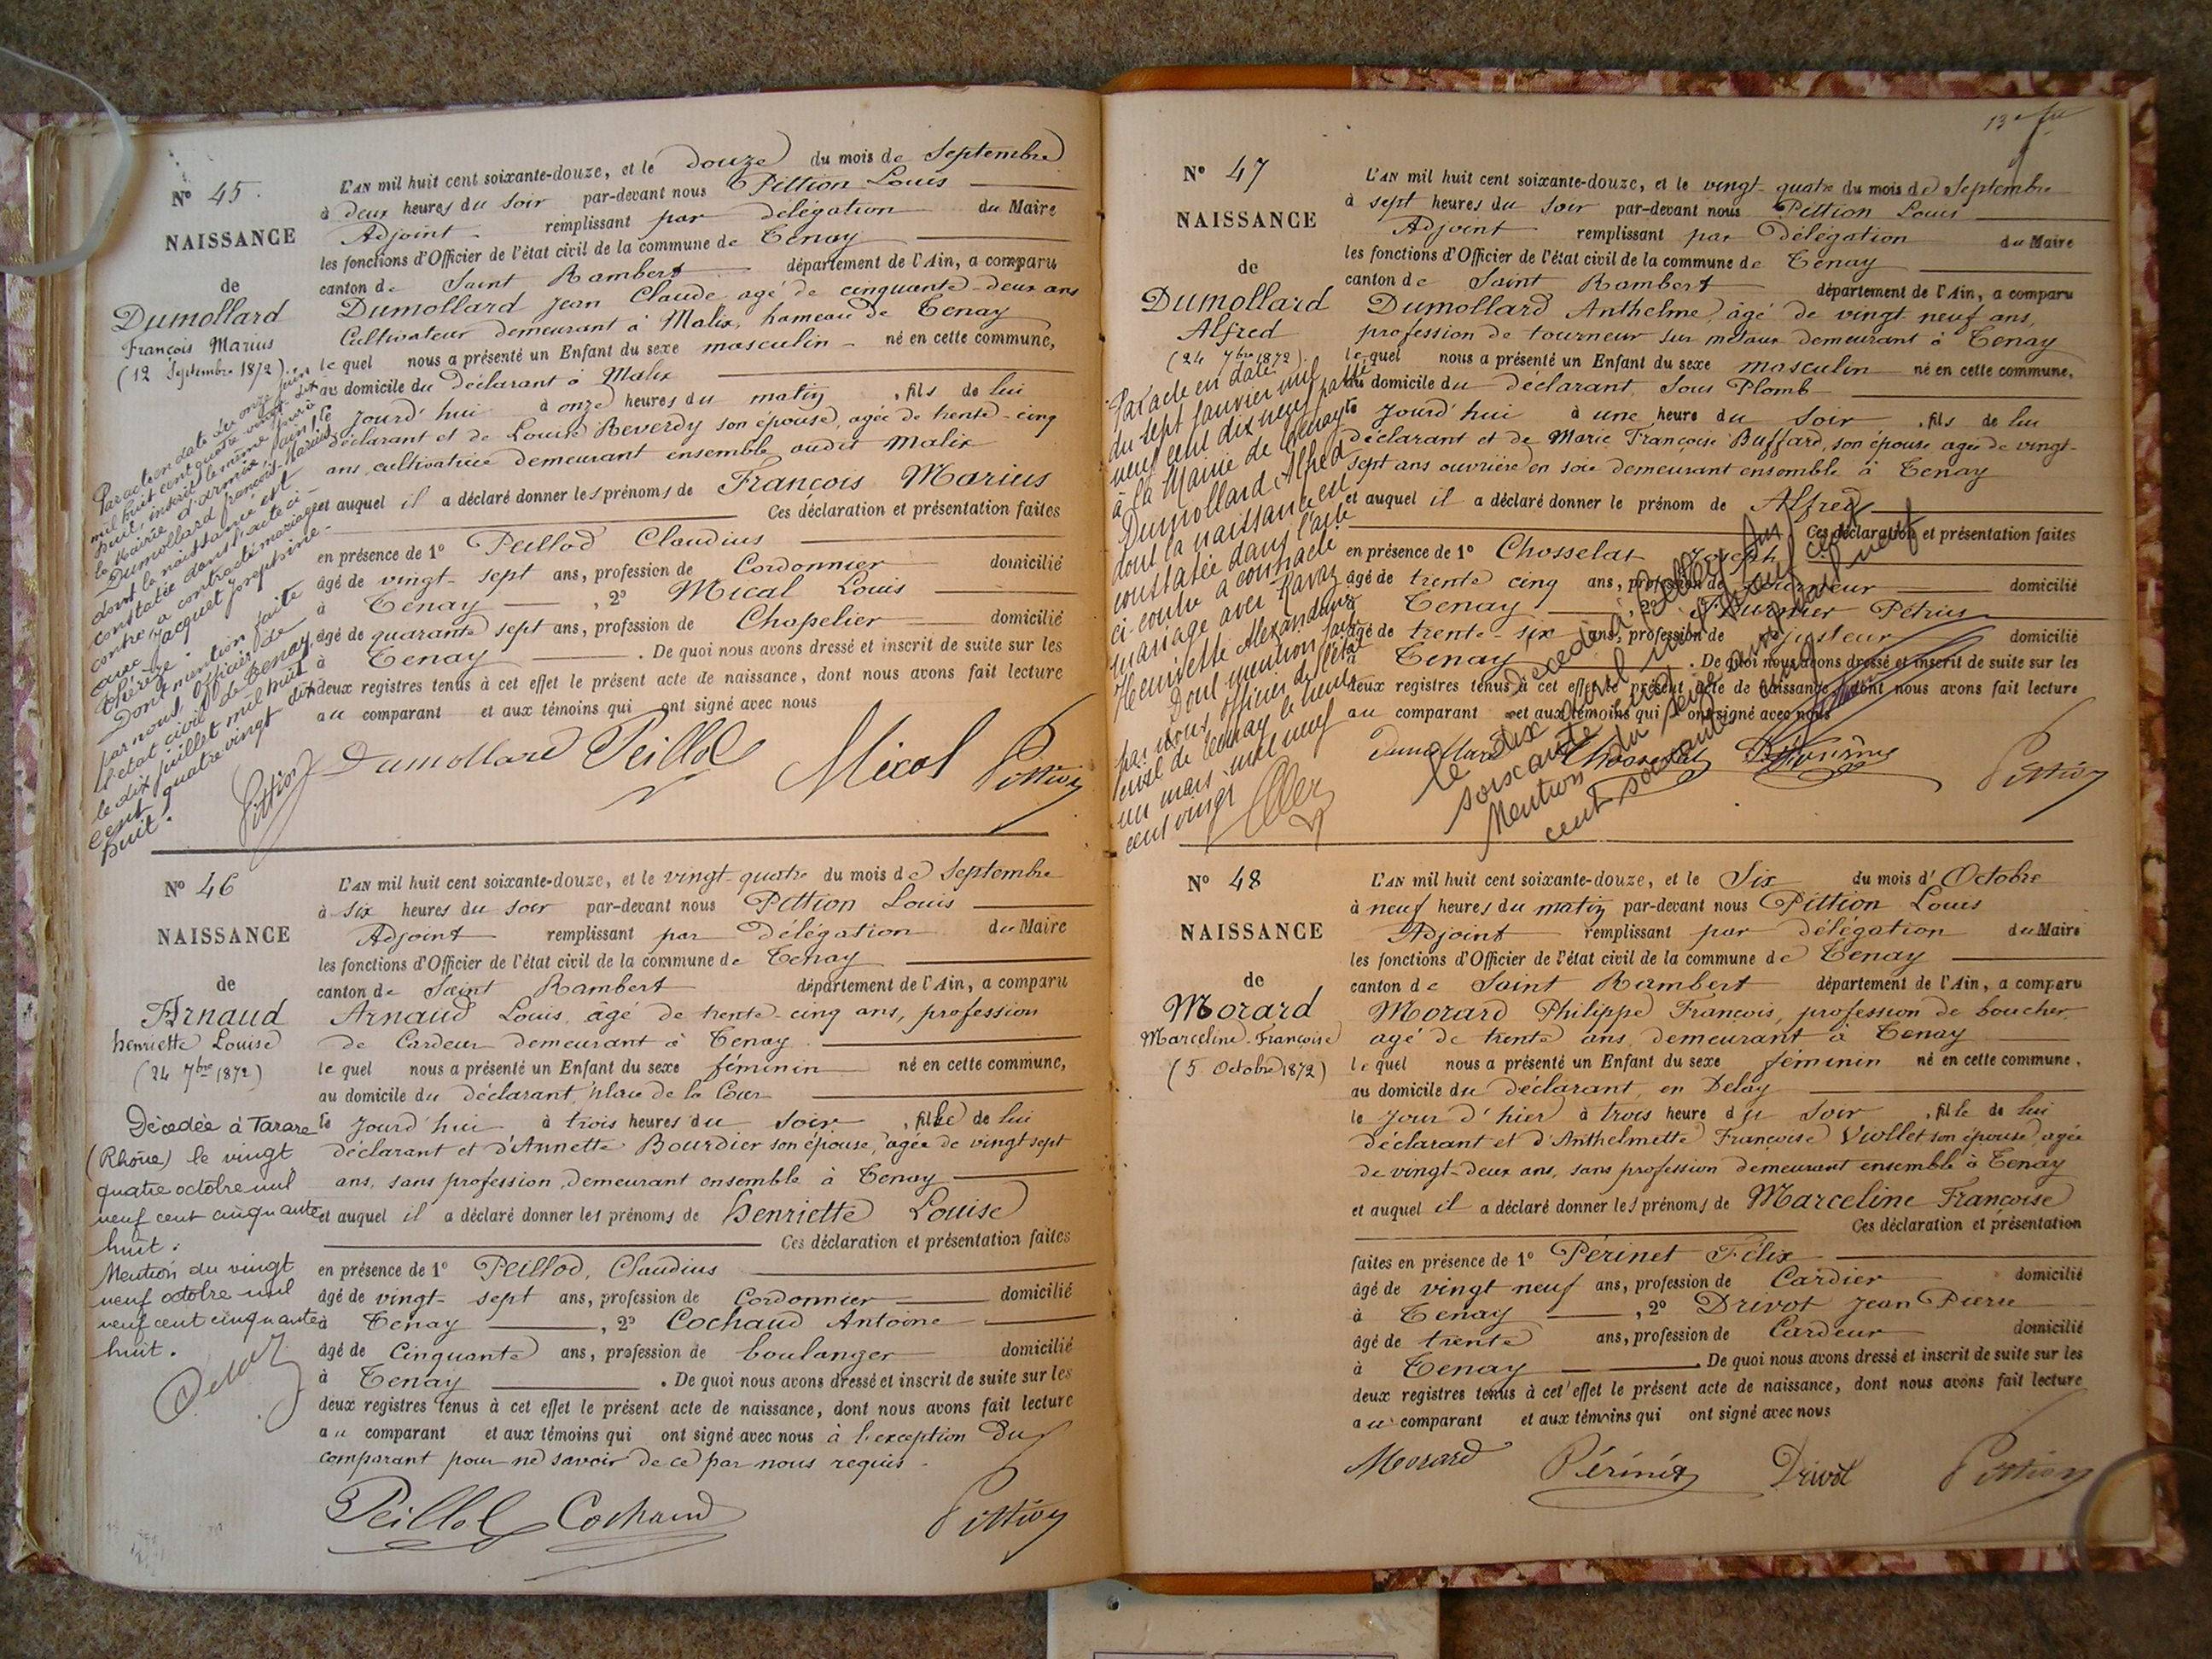 Nº 45.
NAISSANCE
de
Dumollard
François Marius
(12 Septembre 1872)
L'AN mil huit cent soixante-douze, et le douze du mois de Septembre
à deux heures du soir par-devant nous Pittion Louis
Adjoint remplissant par délégation du Maire
les fonctions d'Officier de l'état civil de la commune de Tenay
canton de Saint Rambert département de l'Ain, a comparu
Dumollard Jean Claude agé de cinquante-deux ans
Cultivateur demeurant à Malix, hameau de Tenay
le quel nous a présenté un Enfant du sexe masculin né en cette commune,
au domicile du déclarant à Malix
jourd'hui à onze heures du matin, fils de lui
déclarant et de Louise Reverdy son épouse, agée de trente-cinq
ans, cultivatrice demeurant ensemble audit Malix
et auquel il a déclaré donner les prénoms de François Marius
Ces déclaration et présentation faites
en présence de 1º Peillod Claudius
âgé de vingt-sept ans, profession de Cordonnier domicilié
à Tenay, 2º Mical Louis
âgé de quarante sept ans, profession de Chapelier domicilié
à Tenay. De quoi nous avons dressé et inscrit de suite sur les
deux registres tenus à cet effet le présent acte de naissance, dont nous avons fait lecture
au comparant et aux témoins qui ont signé avec nous
Dumollard Peillod Mical Pittion
Par acte en date du onze juin
mil huit cent quatre vingt dix
huit, inscrit le même jour à
la Mairie d'armix (ain) le
Dumollard françois-Marius
dont la naissance est
constatée dans l'acte ci-
contre, a contracté mariage
avec Jacquet Josephine
thérèze.
Dont mention faite
par nous, officier de
l'état civil de Tenay,
le dix juillet mil huit
cent quatre vingt dix
huit.
Pittion
Nº 46
NAISSANCE
de
Arnaud
henriette Louise
(24 7bre 1872)
L'AN mil huit cent soixante-douze, et le vingt-quatre du mois de Septembre
à six heures du soir par-devant nous Pittion Louis
Adjoint remplissant par délégation du Maire
les fonctions d'Officier de l'état civil de la commune de Tenay
canton de Saint Rambert département de l'Ain, a comparu
Arnaud Louis, âgé de trente-cinq ans, profession
de Cardeur demeurant à Tenay
le quel nous a présenté un Enfant du sexe féminin né en cette commune,
au domicile du déclarant, place de la Cour
le jourd'hui à trois heures du soir, fille de lui
déclarant et d'Annette Bourdier son épouse, agée de vingt sept
ans, sans profession, demeurant ensemble à Tenay
et auquel il a déclaré donner les prénoms de henriette Louise
Ces déclaration et présentation faites
en présence de 1º Peillod, Claudius
âgé de vingt-sept ans, profession de Cordonnier domicilié
à Tenay, 2º Cochaud Antoine
âgé de Cinquante ans, profession de boulanger domicilié
à Tenay. De quoi nous avons dressé et inscrit de suite sur les
deux registres tenus à cet effet le présent acte de naissance, dont nous avons fait lecture
au comparant et aux témoins qui ont signé avec nous à l'exception du
comparant pour ne savoir de ce par nous requis.
Peillod Cochaud Pittion
Décédée à Tarare
(Rhône) le vingt
quatre octobre mil
neuf cent cinquante
huit.
Mention du vingt
neuf octobre mil
neuf cent cinquante
huit.
13e
Nº 47
NAISSANCE
de
Dumollard
Alfred
(24 7bre 1872)
L'AN mil huit cent soixante-douze, et le vingt-quatre du mois de Septembre
à sept heures du soir par-devant nous Pittion Louis
Adjoint remplissant par Délégation du Maire
les fonctions d'Officier de l'état civil de la commune de Tenay
canton de Saint Rambert département de l'Ain, a comparu
Dumollard Anthelme, âgé de vingt-neuf ans,
profession de tourneur sur métaux demeurant à Tenay
le quel nous a présenté un Enfant du sexe masculin né en cette commune,
au domicile du déclarant, Sous Plomb
le jourd'hui à une heure du soir, fils de lui
déclarant et de Marie Françoise Buffard, son épouse agée de vingt-
sept ans ouvrière en soie demeurant ensemble à Tenay
et auquel il a déclaré donner le prénom de Alfred
Ces déclaration et présentation faites
en présence de 1º Chosselat Joseph
âgé de trente cinq ans, profession de domicilié
à Tenay, 2º Fournier Pétrus
âgé de trente-six ans, profession de ajusteur domicilié
à Tenay. De quoi nous avons dressé et inscrit de suite sur les
deux registres tenus à cet effet le présent acte de naissance, dont nous avons fait lecture
au comparant et aux témoins qui ont signé avec nous
Dumollard Chosselat Pittion
Par acte en date
du sept janvier mil
neuf cent dix neuf passé
à la Mairie de Tenay
Dumollard Alfred
dont la naissance est
constatée dans l'acte
ci-contre a contracté
mariage avec Ravaz
Henriette Alexandrine
Dont mention faite
par nous officier de l'état
civil de Tenay le trente
un mars mil neuf
cent vingt
Décédé à Belley
le dix avril mil neuf cent
soixante
Mention du
cent soixante neuf
Nº 48
NAISSANCE
de
Morard
Marceline Françoise
(5 Octobre 1872)
L'AN mil huit cent soixante-douze, et le Six du mois d'Octobre
à neuf heures du matin par-devant nous Pittion Louis
Adjoint remplissant par délégation du Maire
les fonctions d'Officier de l'état civil de la commune de Tenay
canton de Saint Rambert département de l'Ain, a comparu
Morard Philippe François, profession de boucher
agé de trente ans, demeurant à Tenay
le quel nous a présenté un Enfant du sexe féminin né en cette commune,
au domicile du déclarant, en Delay
le jour d'hier à trois heure du soir, fille de lui
déclarant et d'Anthelmette Françoise Viollet son épouse, agée
de vingt-deux ans, sans profession demeurant ensemble à Tenay
et auquel il a déclaré donner les prénoms de Marceline Françoise
Ces déclaration et présentation
faites en présence de 1º Périnet Félix
âgé de vingt neuf ans, profession de Cardier domicilié
à Tenay, 2º Drivot Jean Pierre
âgé de trente ans, profession de Cardeur domicilié
à Tenay. De quoi nous avons dressé et inscrit de suite sur les
deux registres tenus à cet effet le présent acte de naissance, dont nous avons fait lecture
au comparant et aux témoins qui ont signé avec nous
Morard Périnet Drivot Pittion